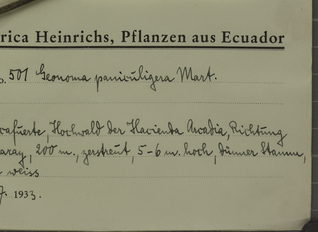 rica Heinrichs, Pflanzen aus Ecuador
o. 501 Geonoma paniculigera Mart.
cafuerte, Hochwald der Hacienda Arcadia, Richtung
aray, 200 m., zerstreut, 5-6 m. hoch, dünner Stamm,
weiss
1933.